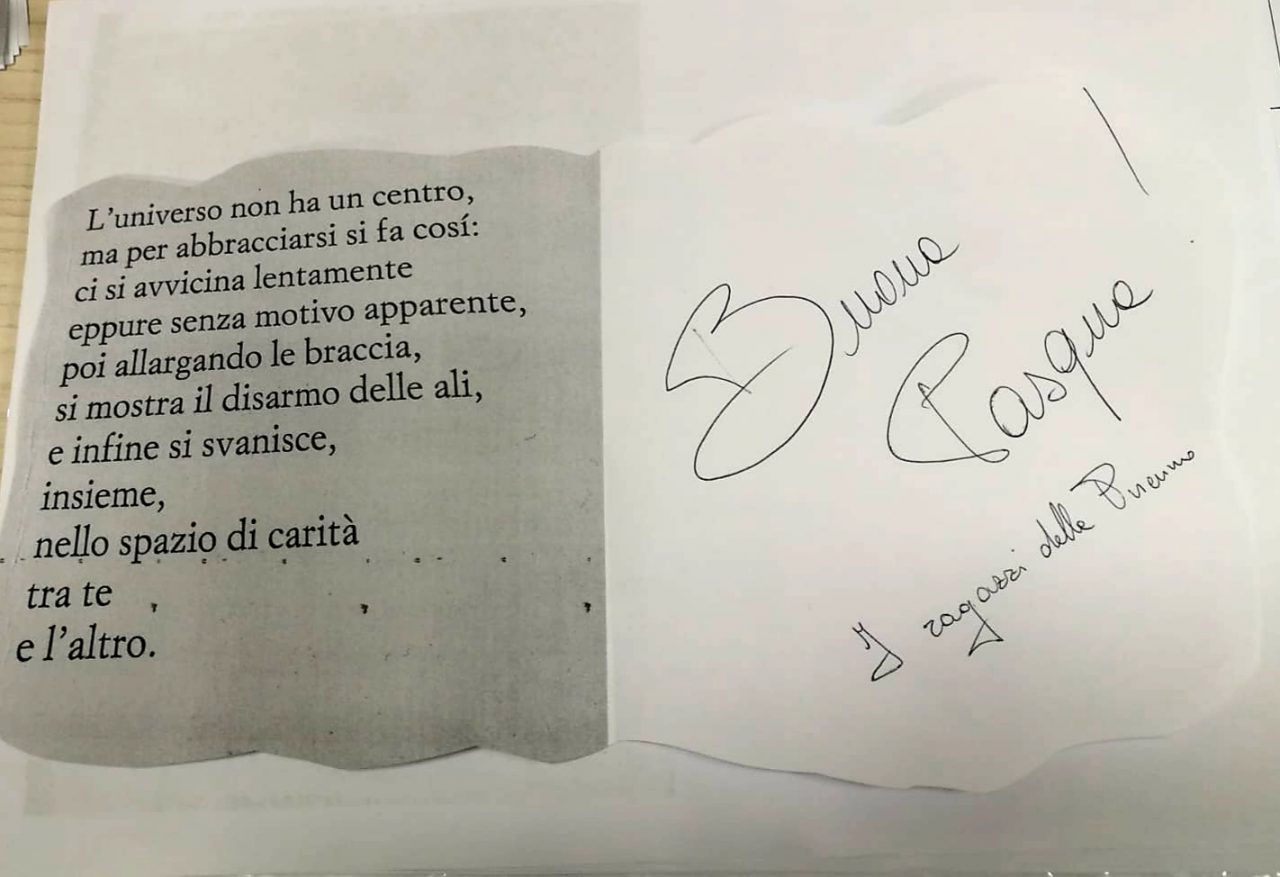 L'universo non ha un centro,
ma per abbracciarsi si fa cosí:
ci si avvicina lentamente
eppure senza motivo apparente,
poi allargando le braccia,
si mostra il disarmo delle ali,
e infine si svanisce,
insieme,
nello spazio di carità
tra te
e l'altro.
Buona
Pasqua!
I ragazzi delle